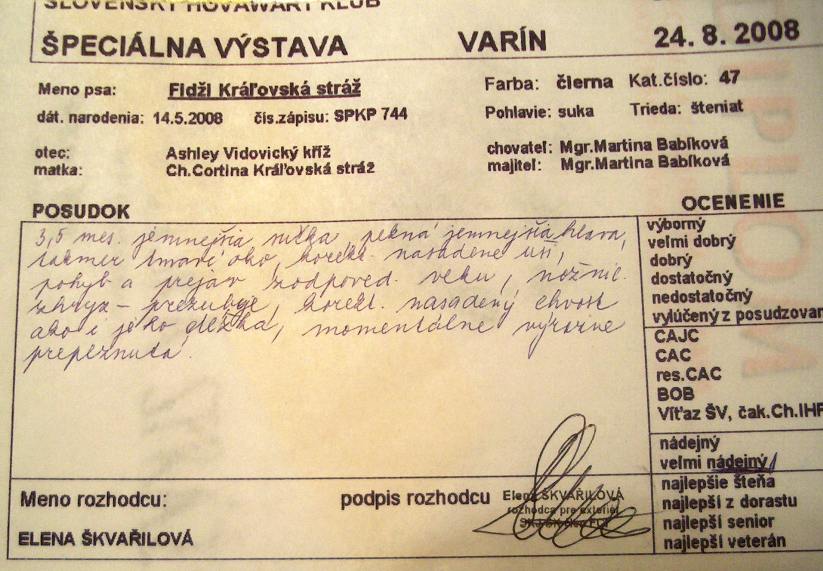 SLOVENSKÝ HOVAWART KLUB
ŠPECIÁLNA VÝSTAVA VARÍN 24. 8. 2008
Meno psa: Fidži Kráľovská stráž Farba: čierna Kat.číslo: 47
dát. narodenia: 14.5.2008 čís.zápisu: SPKP 744 Pohlavie: suka Trieda: šteniat
otec: Ashley Vidovický kríž chovateľ: Mgr.Martina Babíková
matka: Ch.Cortina Kráľovská stráž majiteľ: Mgr.Martina Babíková
POSUDOK OCENENIE
3,5 mes. jemnejšia sučka, pekná jemnejšia hlava,
takmer tmavé oko, korekt. nasadené uši,
pohyb a prejav zodpoved. veku, nožnic.
zhryz – prezubuje, korekt. nasadený chvost
ako i jeho dĺžka, momentálne výrazne
prepĺznutá.
výborný
veľmi dobrý
dobrý
dostatočný
nedostatočný
vylúčený z posudzovan
CAJC
CAC
res.CAC
BOB
Víťaz ŠV, čak.Ch.IHF
nádejný
veľmi nádejný
najlepšie šteňa
najlepší z dorastu
najlepší senior
najlepší veterán
Meno rozhodcu: podpis rozhodcu Elena ŠKVAŘILOVÁ
rozhodca pre exteriér
ELENA ŠKVAŘILOVÁ